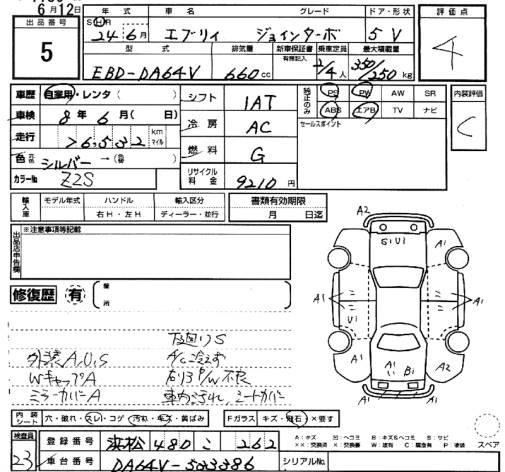 6月12日
出品番号
5
年式 車名 グレード ドア・形状
S・H 24年6月 エブリィ ジョインターボ 5V
型式 排気量 新車保証書 有無記入 乗車定員 最大積載量
EBD-DA64V 660cc 2/4人 350/250kg
評価点
4
車歴 自家用・レンタ( )
車検 8年6月( 日)
走行 76,532 km マイル
色 シルバー → (色替 )
カラーNo. Z2S
シフト 1AT
冷房 AC
燃料 G
リサイクル料金 9210円
純正のみ PS PW AW SR
ABS エアB TV ナビ
セールスポイント
内装評価
C
輸入車 モデル年式 ハンドル 右H・左H 輸入区分 ディーラー・並行
書類有効期限 月 日迄
出品店申告欄 ※注意事項等記載
修復歴 有 箇所
下廻りS
外装A,U,S A/C冷えず
WキャップA 右リヤP/W不良
ミラーカバーA 車内汚れ シートカバー
A2
G1 U1 A1
A1 A1
U1
A1 B1
A2 A2
内装シート 穴・破れ・スレ・コゲ 汚れ・キズ・黄ばみ Fガラス キズ・飛石 ×要す
A:キズ U:ヘコミ B:キズ&ヘコミ S:サビ
××:交換済 X:交換 W:波有 C:腐食有 P:塗装
スペア
検査員 23
登録番号 浜松 480 こ 262
車台番号 DA64V-533386 シリアルNo.